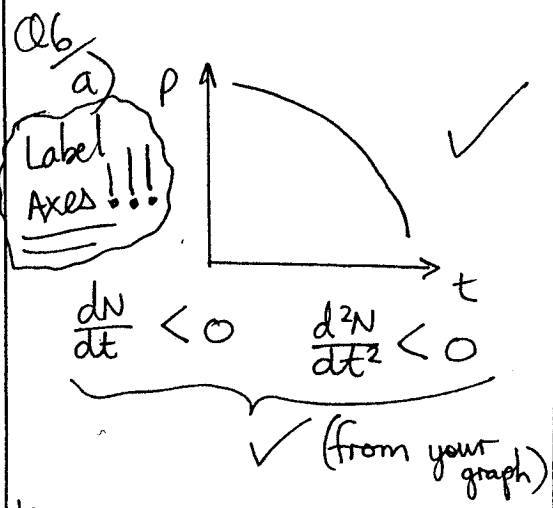 Q6/
a)
Label
Axes!!!
P
t
dN/dt < 0    d²N/dt² < 0
✓ (from your
graph)